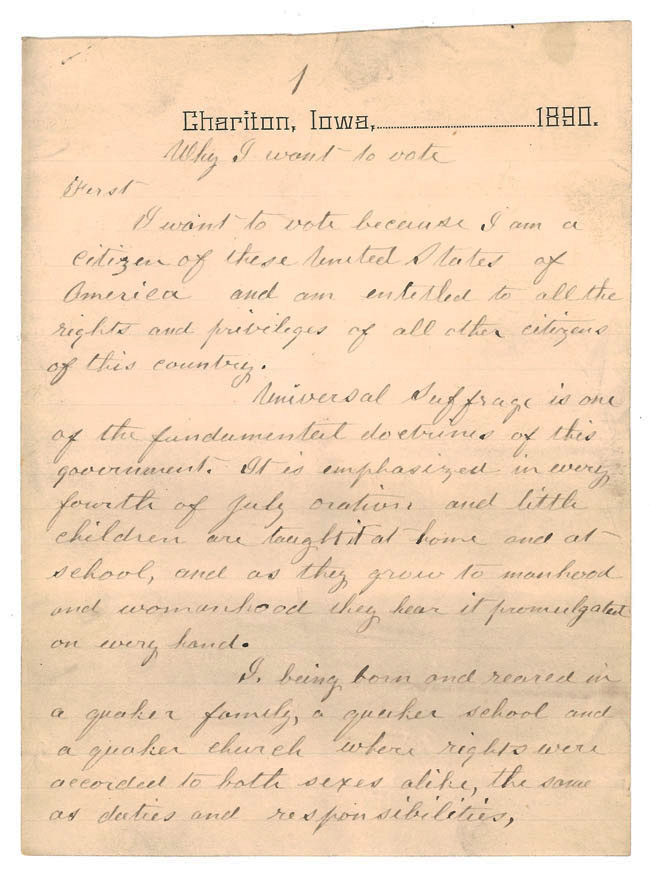 1
Chariton, Iowa, 1890.
Why I want to vote
First
I want to vote because I am a
citizen of these United States of
America and am entitled to all the
rights and privileges of all other citizens
of this country.
Universal Suffrage is one
of the fundamental doctrines of this
government. It is emphasized in every
fourth of July oration and little
children are taught it at home and at
school, and as they grow to manhood
and womanhood they hear it promulgated
on every hand.
I. being born and reared in
a quaker family, a quaker school and
a quaker church where rights were
accorded to both sexes alike, the same
as duties and responsibilities,